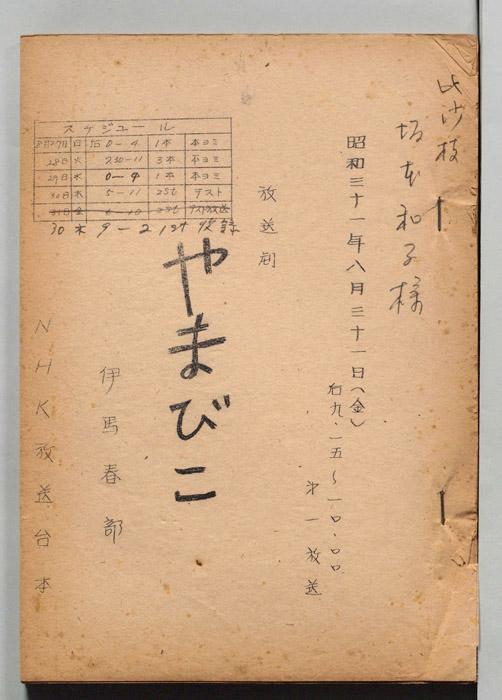 比沙枝
坂本和子様
昭和三十一年八月三十一日(金)
后九・一五~一〇・〇〇
第一放送
放送劇
やまびこ
スケジュール
8月27日 日 后 0-4 1本 本ヨミ
28日 火 2.30-11 3本 本ヨミ
29日 水 0-4 1本 本ヨミ
30日 木 5-11 2st テスト
31日 金 6-10 2st テスト放送
30 木 9-2 1st 收録
伊馬春部
NHK放送台本